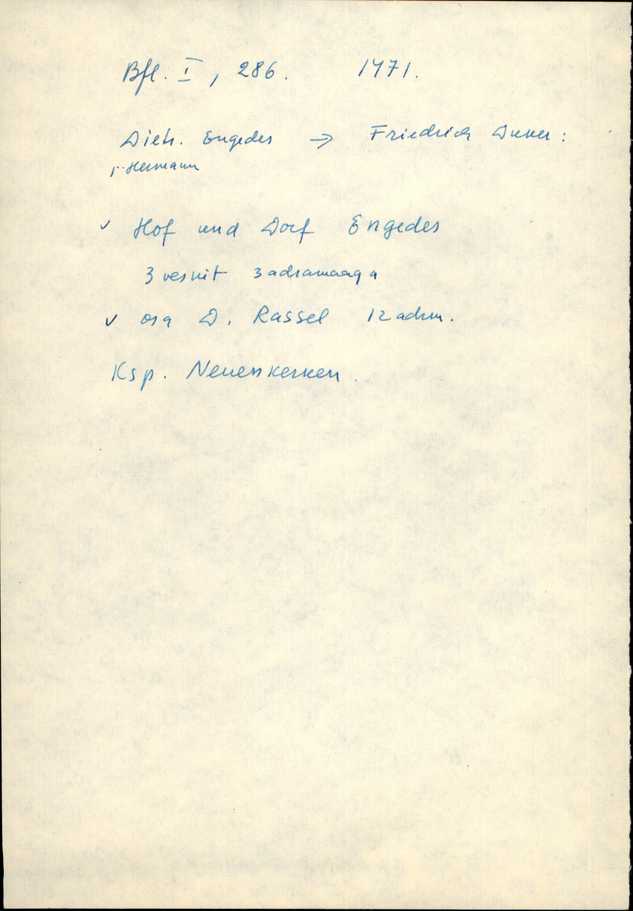 Bfl. I, 286. 1471.
Dietr. Engedes → Friedrich Duker:
Hermann
✓ Hof und Dorf Engedes
3 veskit 3 adramaaga
✓ osa D. Rassel 12 adrm.
Ksp. Neuenkerken.